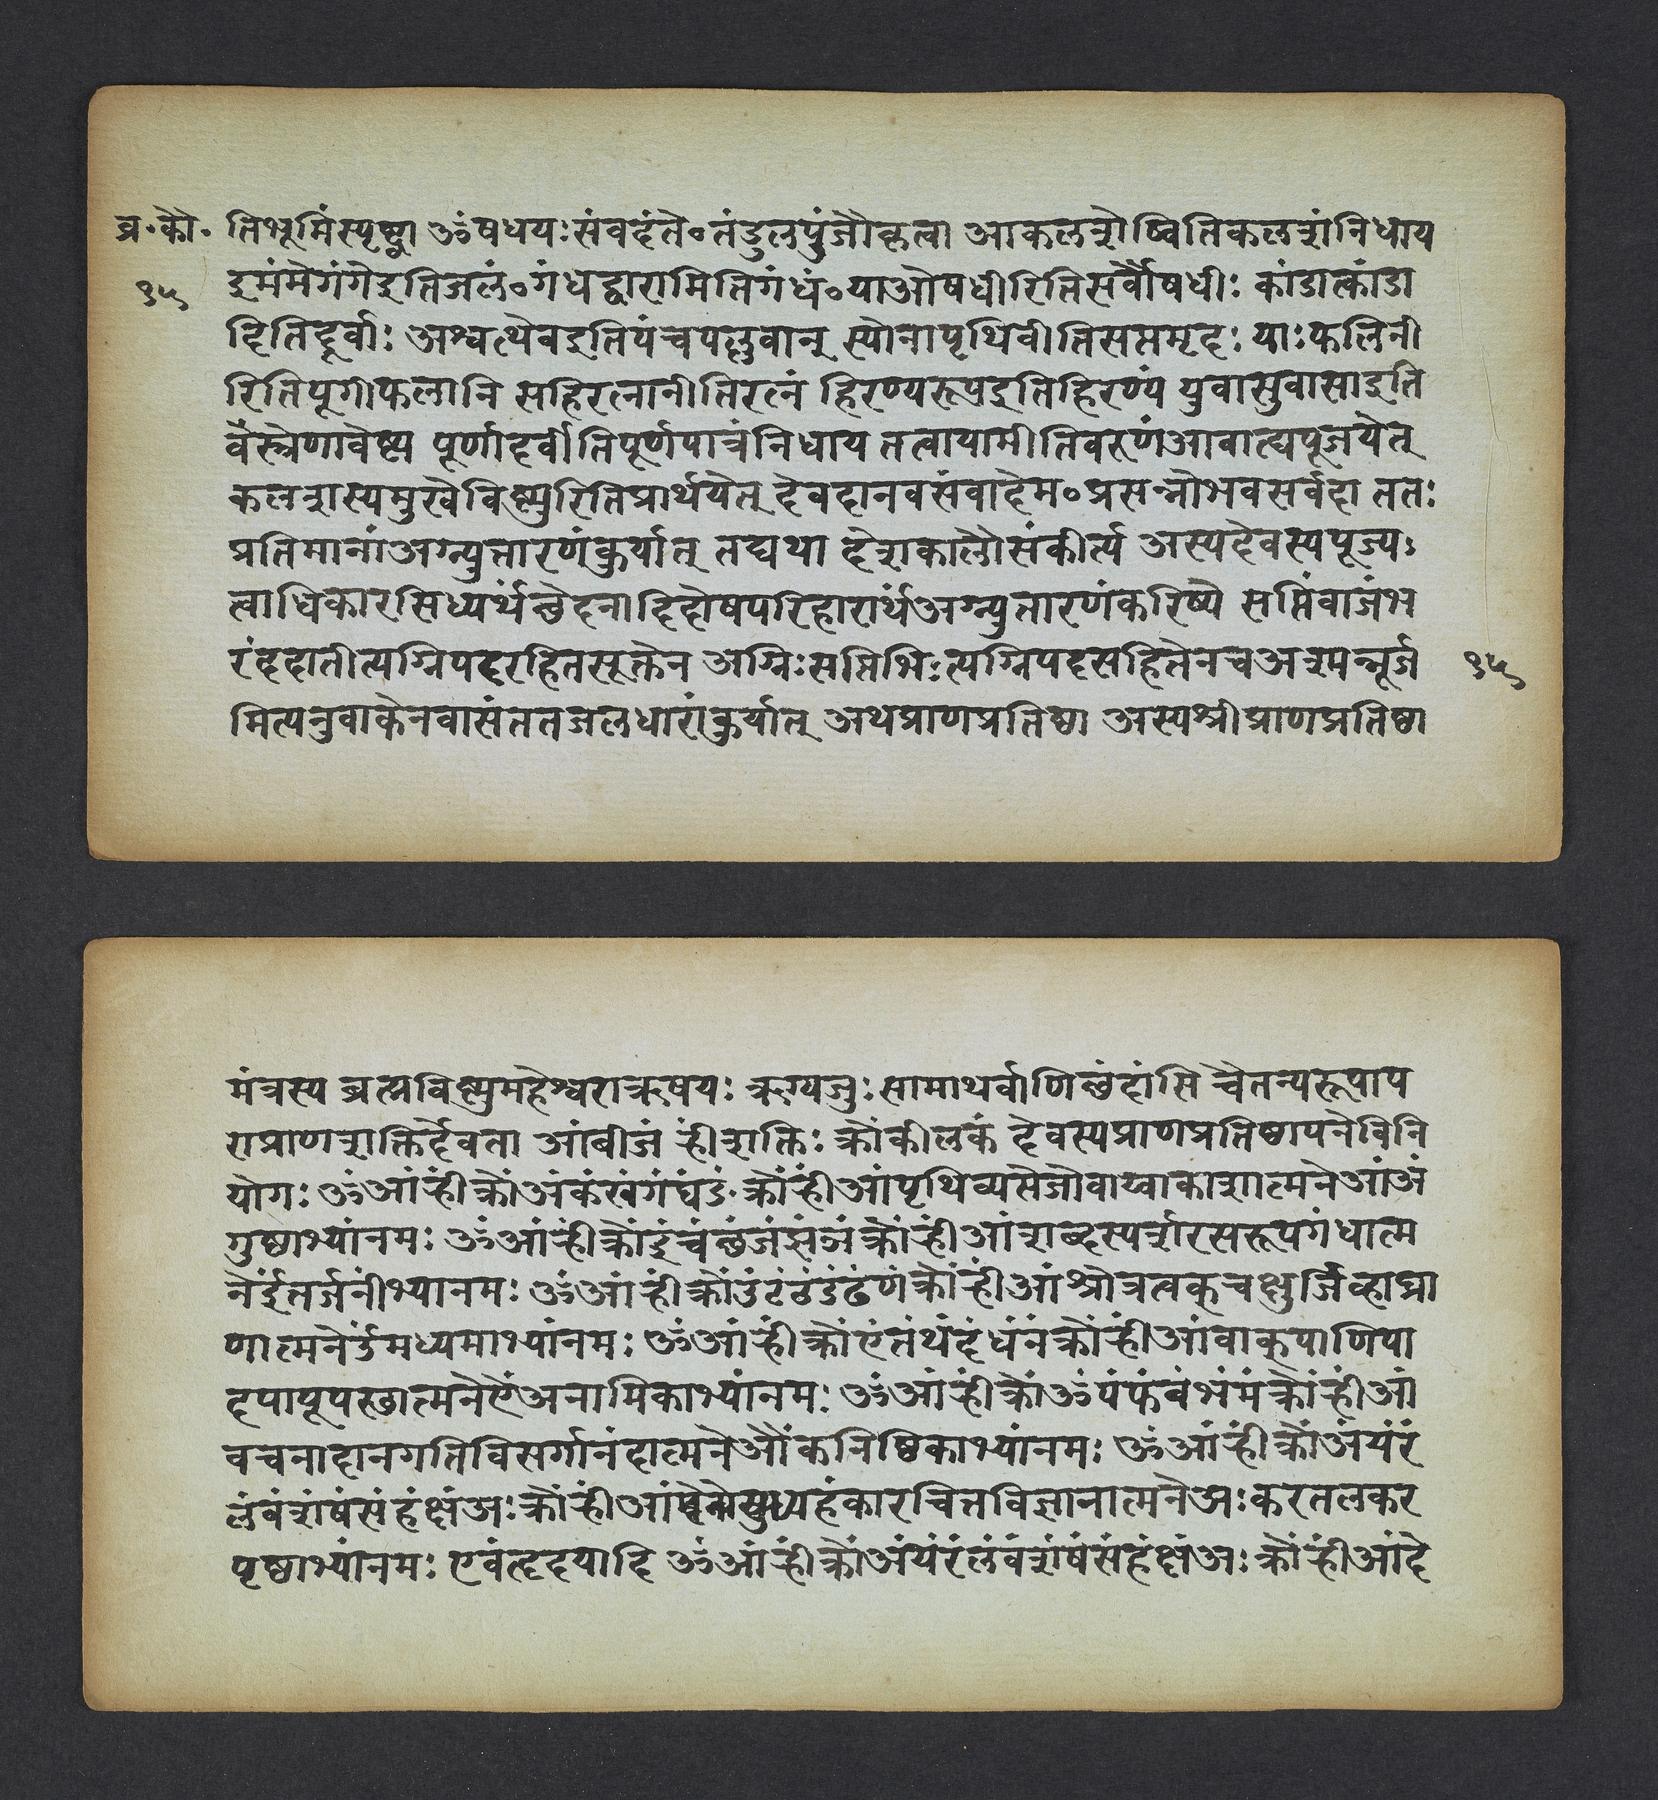 व्र॰कौ॰ तिभूमिंस्पृष्ट्वा ॐषधयःसंवदंते॰तंडुलपुंजौकृत्वा आकलशेष्वितिकलशंनिधाय
१५ इमंमेगंगेइतिजलं॰गंधद्वारामितिगंधं॰याओषधीरितिसर्वौषधीः कांडात्कांडा
दितिदूर्वाः अश्वत्थेवइतिपंचपल्लवान् स्योनापृथिवीतिसप्तमृदः याःफलिनी
रितिपूगीफलानि सहिरत्नानीतिरत्नं हिरण्यरूपइतिहिरण्यं युवासुवासाइति
वस्त्रेणावेष्ट्य पूर्णादर्वीतिपूर्णपात्रंनिधाय तत्वायामीतिवरुणंआवाह्यपूजयेत्
कलशस्यमुखेविष्णुरितिप्रार्थयेत् देवदानवसंवादेम॰प्रसन्नोभवसर्वदा ततः
प्रतिमानांअग्न्युत्तारणंकुर्यात् तद्यथा देशकालौसंकीर्त्य अस्यदेवस्यपूज्य
त्वाधिकारसिध्यर्थंछेदनादिदोषपरिहारार्थंअग्न्युत्तारणंकरिष्ये सप्तिंवाजंभ
रंददातीत्यग्निपदरहितसूक्तेन अग्निःसप्तिभिःत्यग्निपदसहितेनचअश्मन्नूर्ज १५
मित्यनुवाकेनवासंततजलधारांकुर्यात् अथप्राणप्रतिष्ठा अस्यश्रीप्राणप्रतिष्ठा
मंत्रस्य ब्रह्मविष्णुमहेश्वराऋषयः ऋग्यजुःसामाथर्वाणिछंदांसि चैतन्यरूपाप
राप्राणशक्तिर्देवता आंबीजं ह्रींशक्तिः क्रौंकीलकं देवस्यप्राणप्रतिष्ठापनेविनि
योगः ॐआंह्रींक्रौंअंकंखंगंघंङं क्रौंह्रींआंपृथिव्यप्तेजोवाय्वाकाशात्मनेआंअं
गुष्ठाभ्यांनमः ॐआंह्रींक्रौंइंचंछंजंझंञंक्रौंह्रींआंशब्दस्पर्शरसरूपगंधात्म
नेईंतर्जनीभ्यांनमः ॐआंह्रींक्रौंउंटंठंडंढंणंक्रौंह्रींआंश्रोत्रत्वक्चक्षुर्जिव्हाघ्रा
णात्मनेऊंमध्यमाभ्यांनमः ॐआंह्रींक्रौंएंतंथंदंधंनंक्रौंह्रींआंवाक्पाणिपा
दपायूपस्छात्मनेऐंअनामिकाभ्यांनमः ॐआंह्रींक्रौंॐपंफंबंभंमंक्रौंह्रींआं
वचनादानगतिविसर्गानंदात्मनेऔंकनिष्ठिकाभ्यांनमः ॐआंह्रींक्रौंअंयंरं
लंवंशंषंसंहंक्षंअःक्रौंह्रींआंमनोबुध्यहंकारचित्तविज्ञानात्मनेअःकरतलकर
पृष्ठाभ्यांनमः एवंहृदयादि ॐआंह्रींक्रौंअंयंरंलंवंशंषंसंहंक्षंअः क्रौंह्रींआंदे